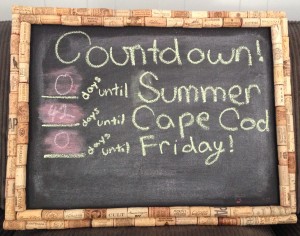 Countdown!
0 days until Summer
42 days until Cape Cod
0 days until Friday!